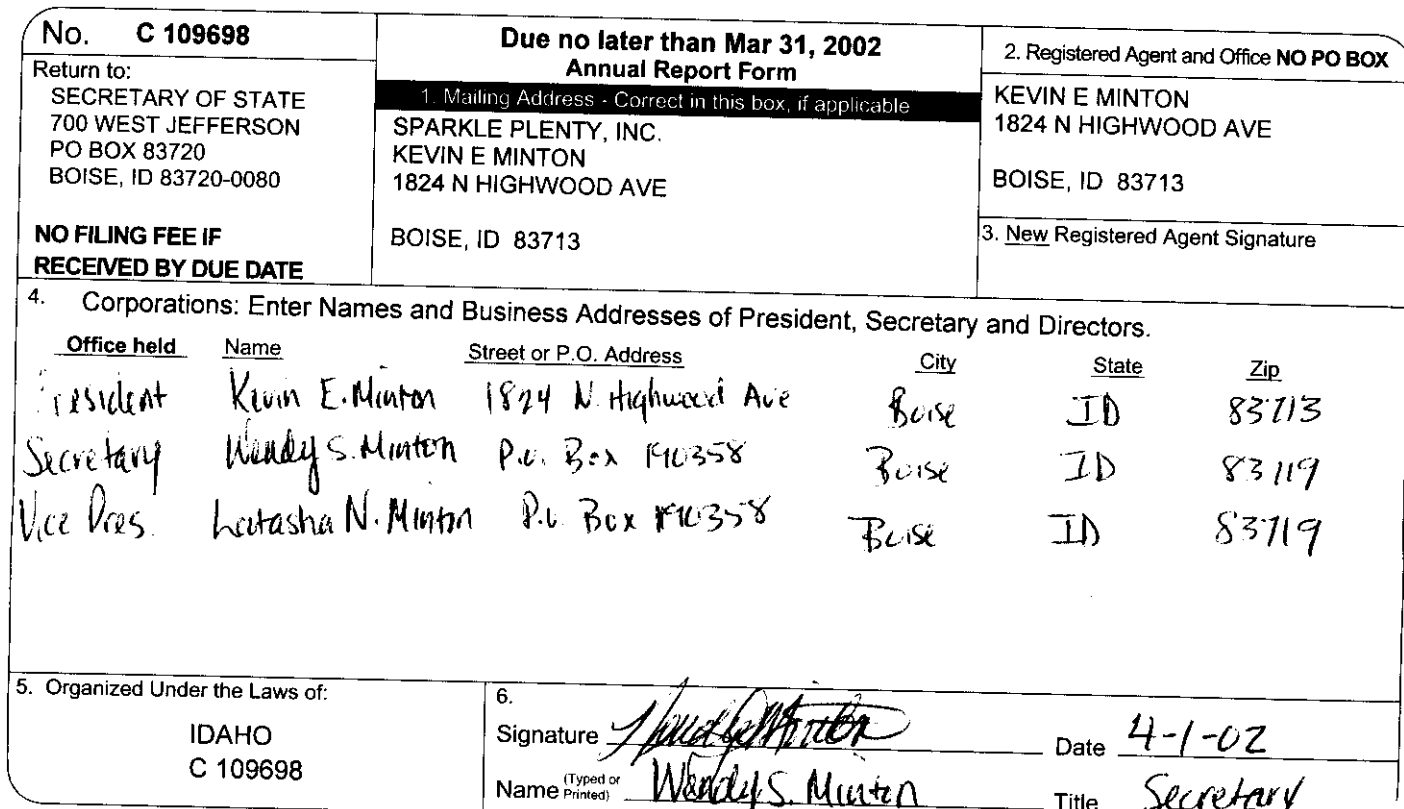 No. C 109698
Return to:
SECRETARY OF STATE
700 WEST JEFFERSON
PO BOX 83720
BOISE, ID 83720-0080
NO FILING FEE IF
RECEIVED BY DUE DATE
Due no later than Mar 31, 2002
Annual Report Form
1. Mailing Address - Correct in this box, if applicable
SPARKLE PLENTY, INC.
KEVIN E MINTON
1824 N HIGHWOOD AVE
BOISE, ID 83713
2. Registered Agent and Office NO PO BOX
KEVIN E MINTON
1824 N HIGHWOOD AVE
BOISE, ID 83713
3. New Registered Agent Signature
4. Corporations: Enter Names and Business Addresses of President, Secretary and Directors.
Office held Name Street or P.O. Address City State Zip
President Kevin E. Minton 1824 N. Highwood Ave Boise ID 83713
Secretary Wendy S. Minton P.O. Box 190358 Boise ID 83719
Vice Pres. Latasha N. Minton P.O. Box 190358 Boise ID 83719
5. Organized Under the Laws of:
IDAHO
C 109698
6.
Signature Date 4-1-02
Name (Typed or Printed) Wendy S. Minton Title Secretary